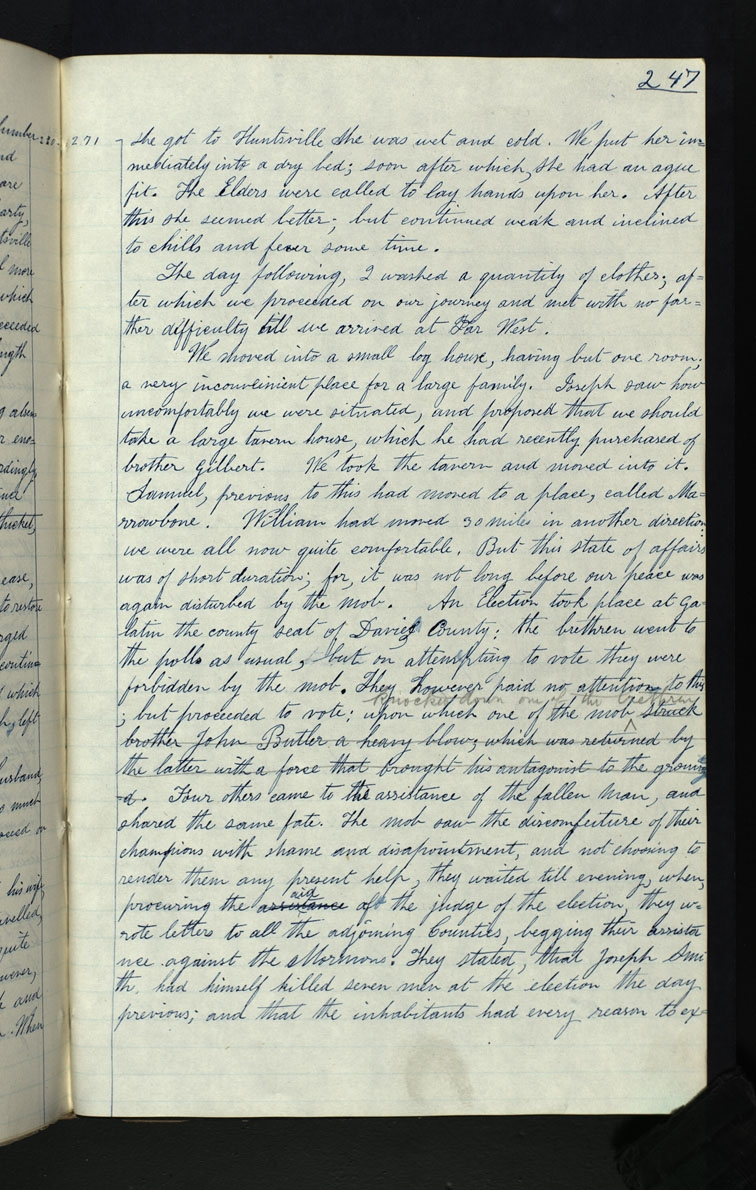 247
umber
220-271
she got to Huntsville she was wet and cold. We put her im=
nd
mediately into a dry bed; soon after which, she had an ague
are
fit. The Elders were called to lay hands upon her. After
arty,
this she seemed better; but continued weak and inclined
tsville
to chills and fever some time.
l more
The day following, I washed a quantity of clothes; af=
which
ter which we proceeded on our journey and met with no far=
oceeded
ther difficulty till we arrived at Far West.
ngth
We moved into a small log house, having but one room;
a very inconveinient place for a large family. Joseph saw how
uncomfortably we were situated, and proposed that we should
r eno=
take a large tavern house, which he had recently purchased of
rdingly
brother Gilbert. We took the tavern and moved into it.
Samuel, previous to this had moved to a place, called Ma=
thicket,
rrowbone. William had moved 30 miles in another direction:
we were all now quite comfortable. But this state of affairs
ease,
was of short duration; for, it was not long before our peace was
to restore
again disturbed by the mob. An Election took place at Ga=
rged
latin the county seat of Davies County; the brethren went to
the polls as usual, but on attempting to vote they were
which
forbidden by the mob. They however paid no attention to this
knocked down one of the brethren
h, left
; but proceeded to vote; upon which one of the mob struck
brother John Butler a heavy blow; which was returned by
usband
the latter with a force that brought his antagonist to the groun
o much
d. Four others came to the assistance of the fallen man, and
oceed on
shared the same fate. The mob saw the discomfeiture of their
champions with shame and disapointment, and not choosing to
his wife
render them any present help, they waited till evening, when,
aid
avelled
procuring the assistance of the judge of the election, they w=
quite
rote letters to all the adjoining Counties, begging their assista
wever,
nce against the Mormons. They stated, that Joseph Smi
and
th, had himself killed seven men at the election the day
When
previous; and that the inhabitants had every reason to ex=